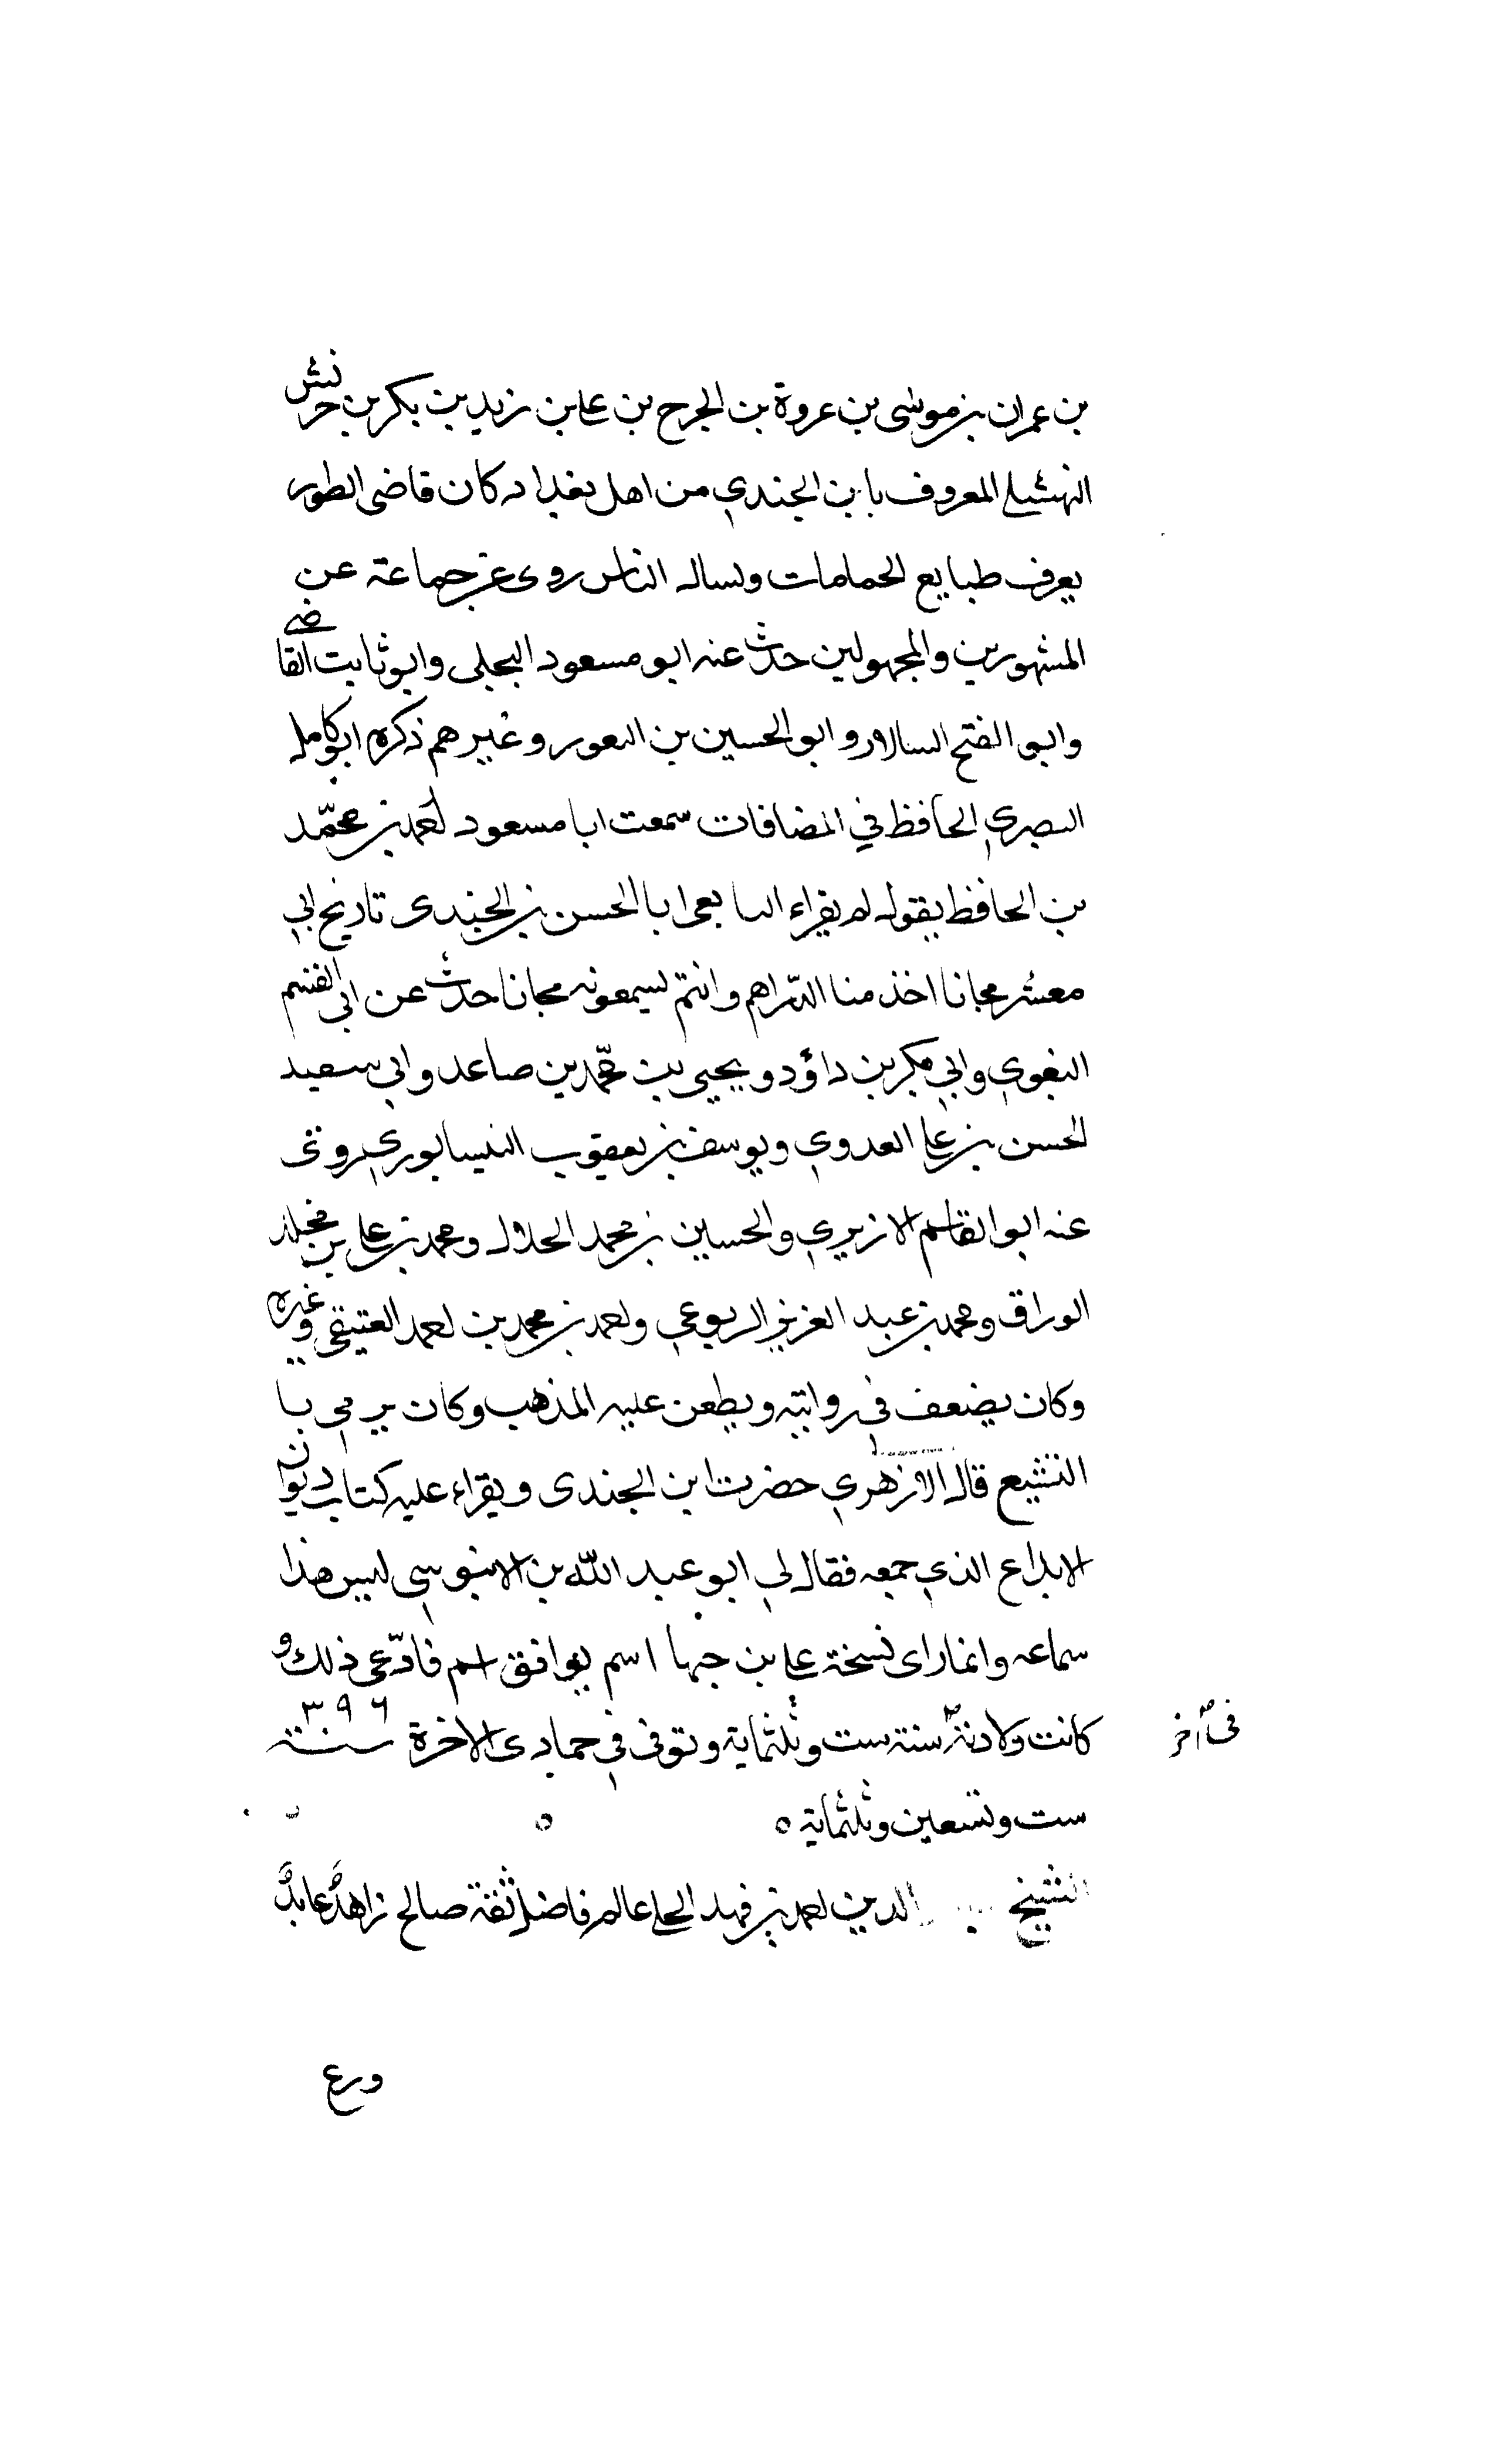 بن عمران بن موسى بن عروة بن الجرح بن على بن زيد بن بكر بن حرنش
النهشلى المعروف بابن الجندي من اهل بغداد كان قاضى الطور
يعرف طبايع الحمامات ولساله الناس روى عن جماعة عن
المشهورين والمجهولين حدث عنه ابو مسعود البجلى وابو ثابت القاضى
وابو الفتح السالار وابو الحسين بن النعور وغيرهم ذكره ابو كامل
البصري الحافظ في المضافات سمعت ابا مسعود احمد بن محمّد
بن الحافظ يقول لم يقراء ابا الحسن بن الجندى تاريخ ابي
معشر مجانا اخذ منا الدّراهم وانتم لسيمعونه مجانا حدث عن ابي القسم
البغوي وابي بكر بن داؤد ويحيى بن محّمد بن صاعد وابي سعيد
الحسن بن على العدوي ويوسف بن يعقوب النيسابوري روى
عنه ابو القاسم الازيري والحسين بن محمد الحلال ومحمد بن على بن مخلد
الوراق ومحمد بن عبد العزيز الربوعي واحمد بن محمد بن احمد العتيقى وغيره
وكان يضعف في روايته ويطعن عليه المذهب وكان يرمى با
التشيع قال الازهري حضرت ابن الجندى ويقراء عليه كتاب ديوان
الابداع الذي جمعه فقال لي ابو عبد الله بن الابنوسي ليس هذا
سماعه وانما راى نسخة على بن جها اسم يوافق اسم فادّعى ذلك و
كانت ولادته سنة ست وثلثماية وتوفى في جمادى الاخرة سنة ٣٩٦
فى آخر
ست وتسعين وثلثماية ٥ ٥
الشيخ الدين احمد بن فهد الحلى عالم فاضل ثقة صالح زاهد عابد
ورع